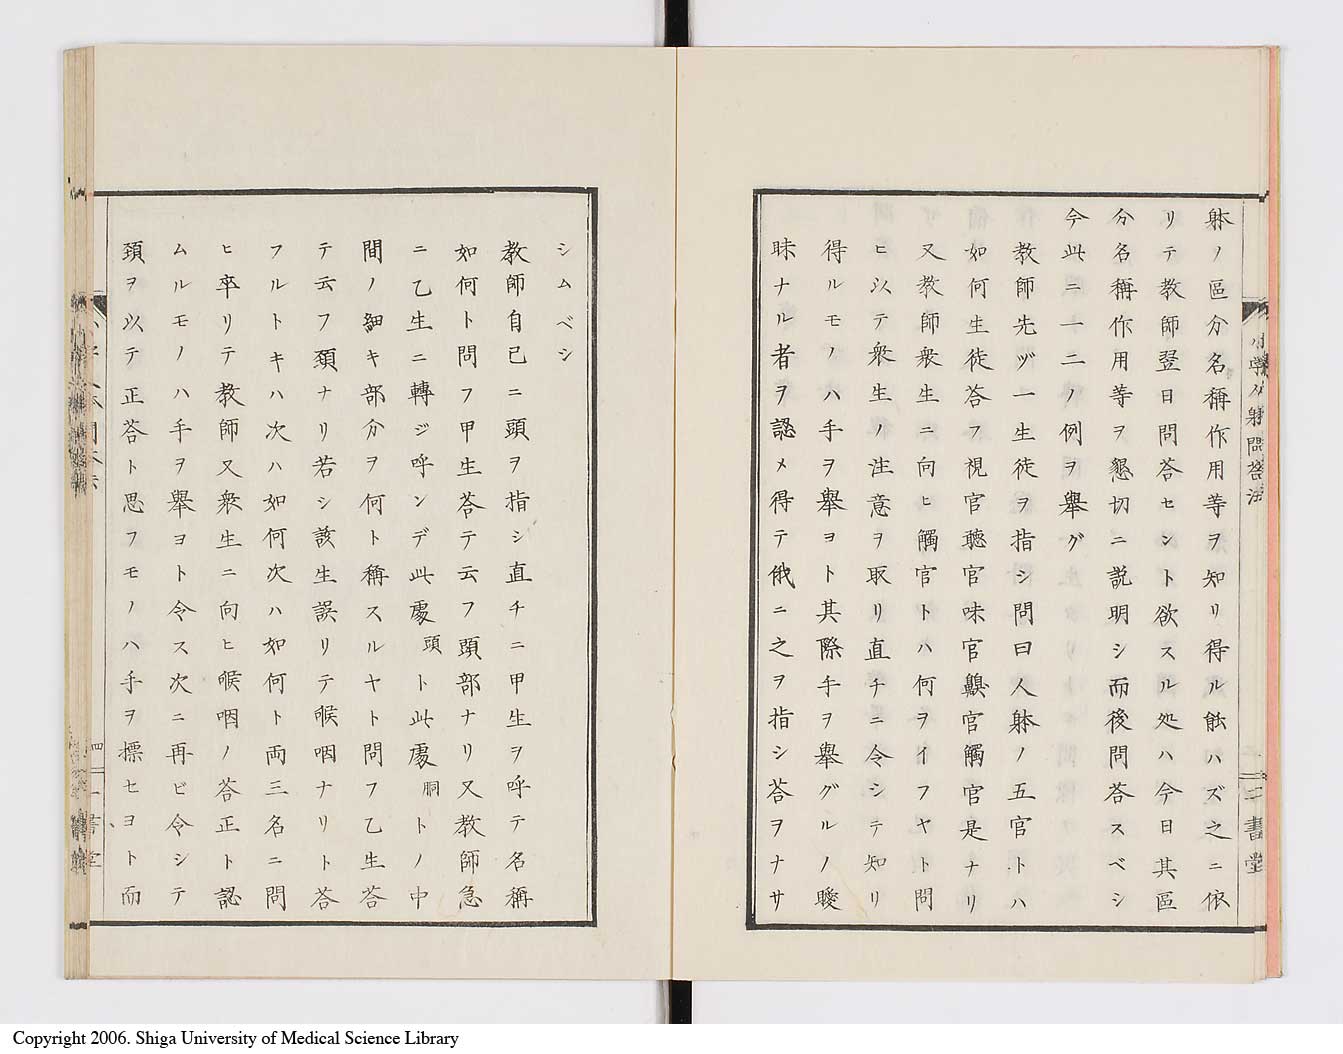 躰ノ區分名稱作用等ヲ知リ得ル蝕ハズ之ニ依
リテ教師翌日問答セント欲スル処ハ今日其區
分名稱作用等ヲ懇切ニ説明シ而後問答スベシ
今此ニ一二ノ例ヲ擧グ
教師先ヅ一生徒ヲ指シ問曰人躰ノ五官トハ
如何生徒答フ視官聴官味官鼻官觸官是ナリ
又教師衆生ニ向ヒ觸官トハ何ヲイフヤト問
ヒ以テ衆生ノ注意ヲ取リ直チニ令シテ知リ
得ルモノハ手ヲ擧ヨト其際手ヲ擧グルノ曖
昧ナル者ヲ認メ得テ俄ニ之ヲ指シ答ヲナサ
小學人躰問答法
三
二書堂
シムベシ
教師自己ニ頭ヲ指シ直チニ甲生ヲ呼テ名稱
如何ト問フ甲生答テ云フ頭部ナリ又教師急
ニ乙生ニ轉ジ呼ンデ此處頭ト此處胴トノ中
間ノ細キ部分ヲ何ト稱スルヤト問フ乙生答
テ云フ頚ナリ若シ該生誤リテ喉咽ナリト答
フルトキハ次ハ如何次ハ如何ト両三名ニ問
ヒ卒リテ教師又衆生ニ向ヒ喉咽ノ答正ト認
ムルモノハ手ヲ擧ヨト令ス次ニ再ビ令シテ
頚ヲ以テ正答ト思フモノハ手ヲ標セヨト而
四
Copyright 2006. Shiga University of Medical Science Library